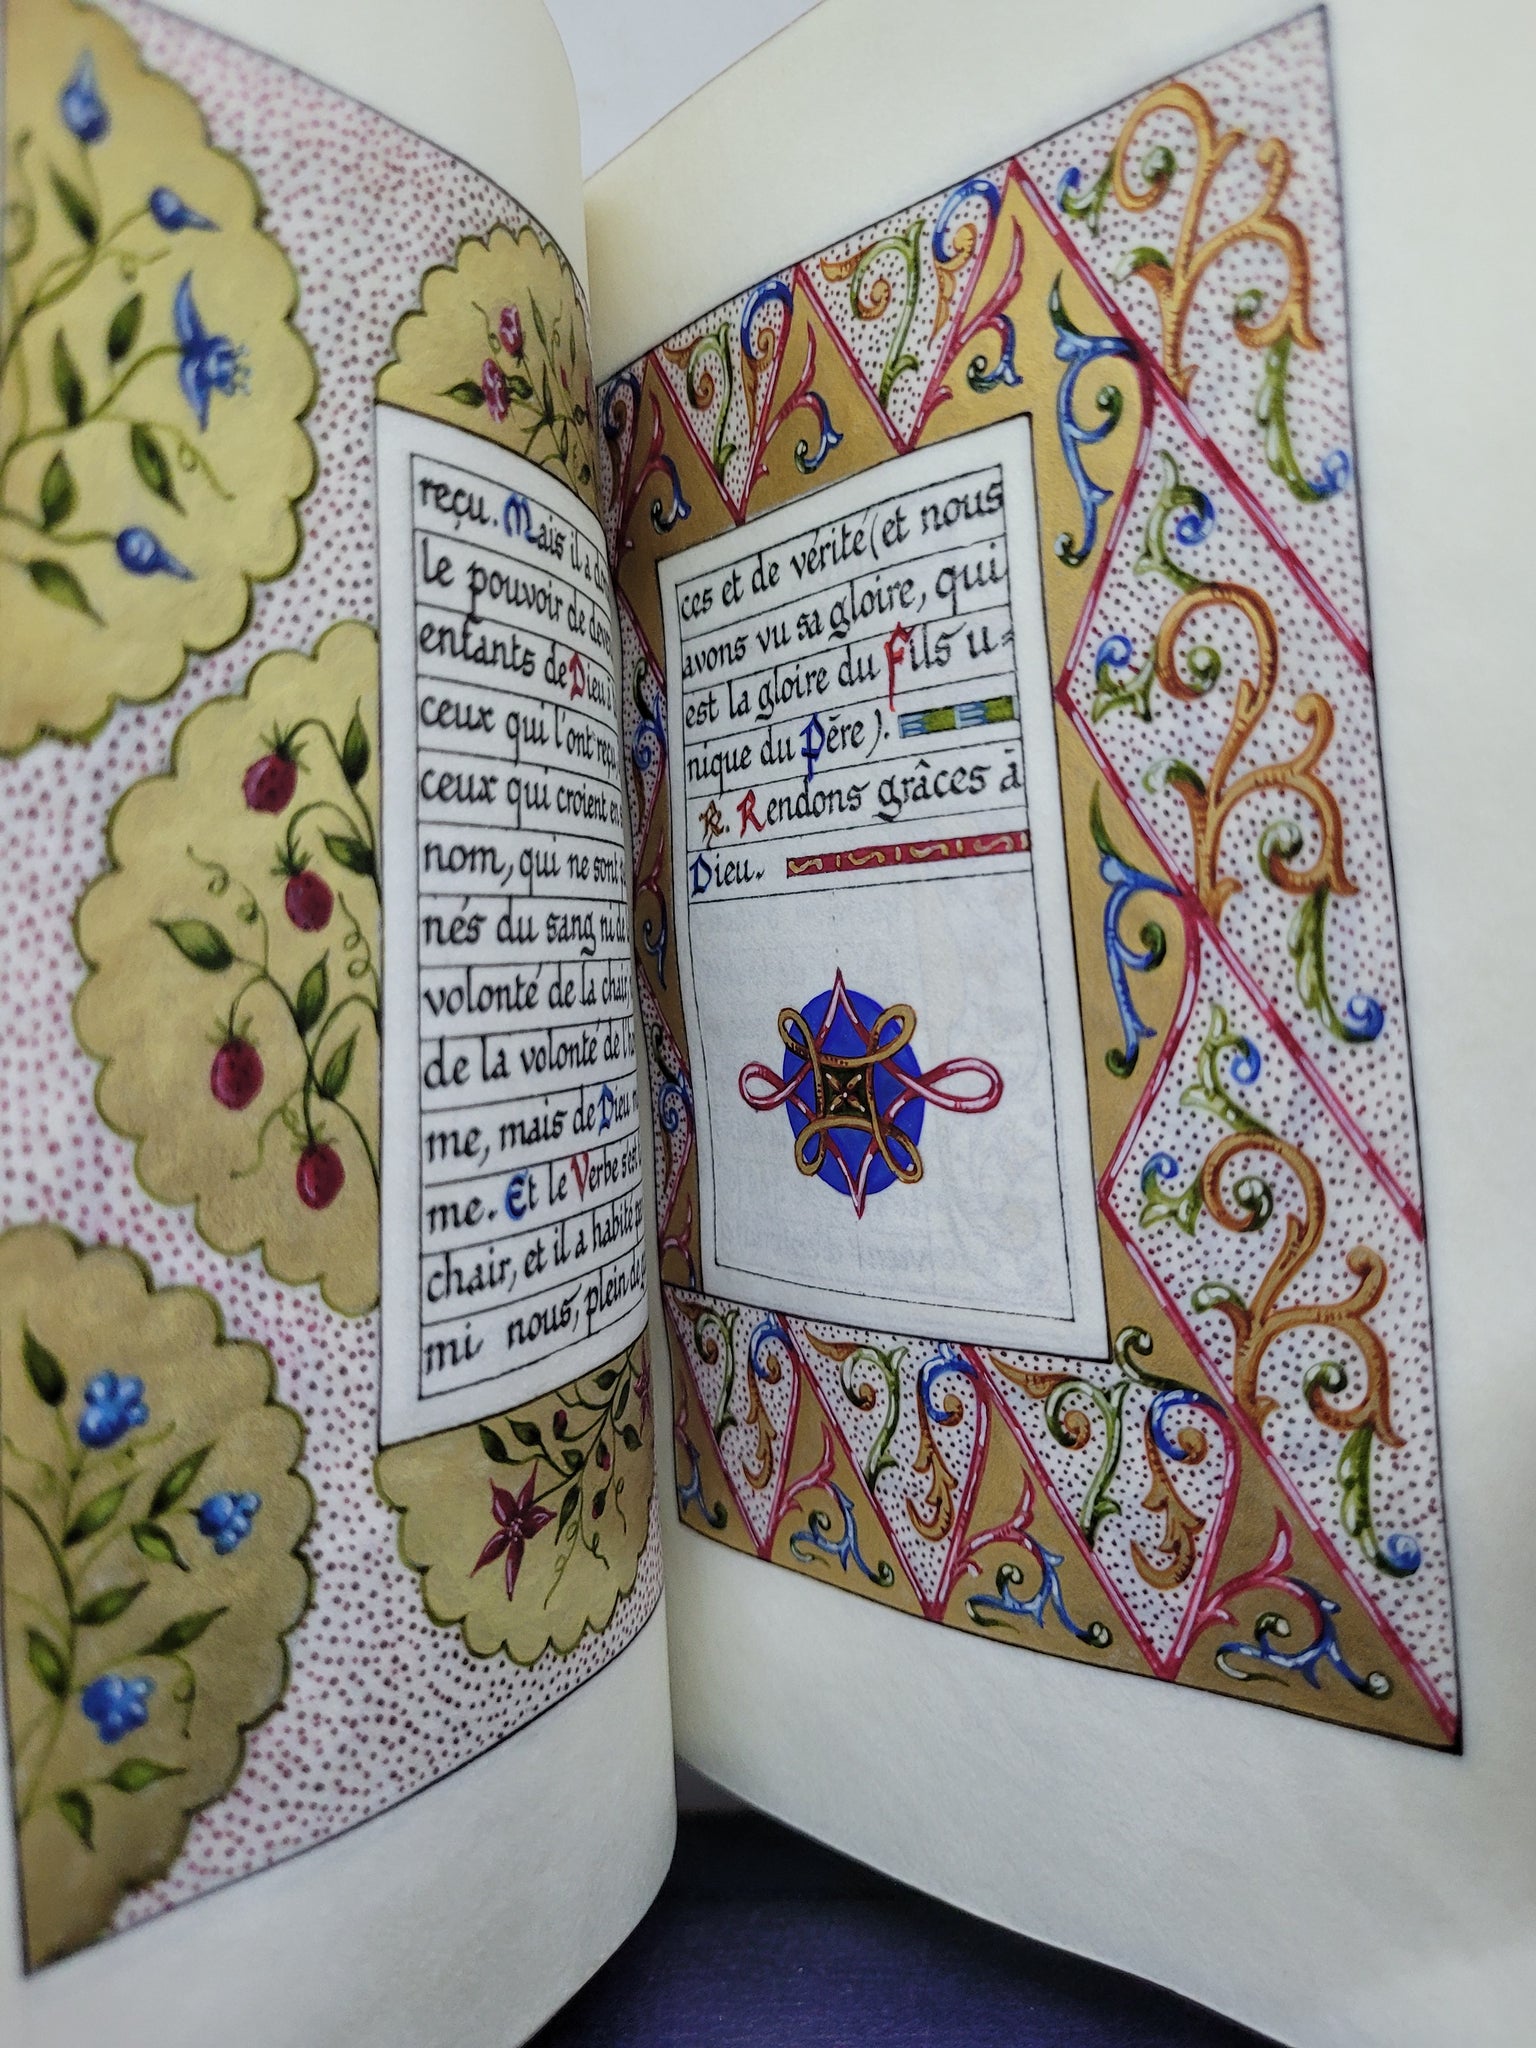 reçu. Mais il a
le pouvoir de
enfants de Dieu à
ceux qui l'ont reçu
ceux qui croient en
nom, qui ne sont
nés du sang ni de
volonté de la chair,
de la volonté de
me, mais de Dieu
me. Et le Verbe s'est
chair, et il a habité
mi nous, plein de
ces et de vérité (et nous
avons vu sa gloire, qui
est la gloire du Fils u=
nique du Père).
R. Rendons grâces à
Dieu.